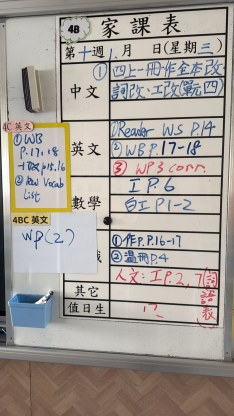 4B 家課表
第十週 1月 日(星期三)
中文
①四上一冊-作全本改
詞改、工改(單元四)
英文
①Reader WS P.14
②WBP.17-18
③WP3 corr.
數學
I P.6
白工P1-2
①作P.P.16-17
②溫冊P.4
人文:工P.2,7
詞語表
其它
值日生
4C 英文
①WB
P.17,18
P.15,16
②Rev Vocab
List
4BC 英文
WP(2)